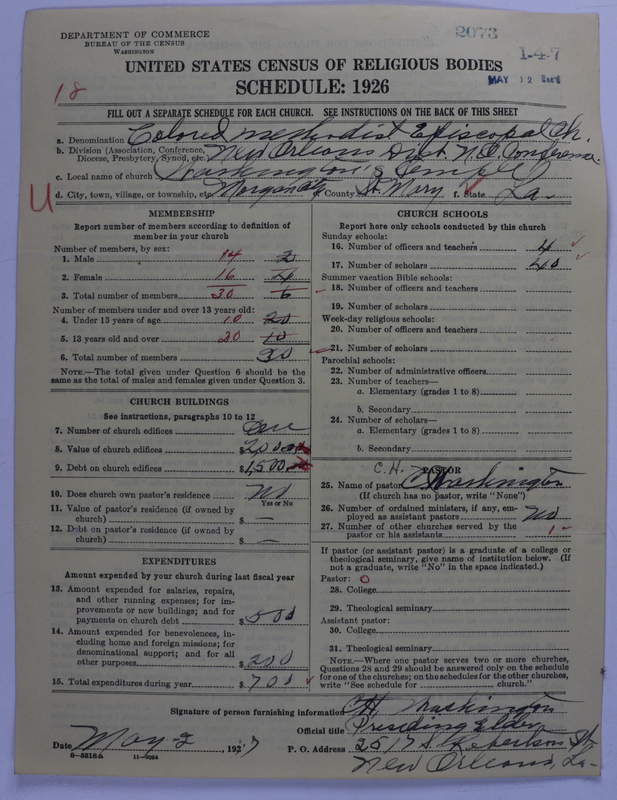 DEPARTMENT OF COMMERCE
BUREAU OF THE CENSUS
WASHINGTON
2073
1-4-7
MAY 12
18
UNITED STATES CENSUS OF RELIGIOUS BODIES
SCHEDULE: 1926
FILL OUT A SEPARATE SCHEDULE FOR EACH CHURCH. SEE INSTRUCTIONS ON THE BACK OF THIS SHEET
a. Denomination Colored Methodist Episcopal Ch.
b. Division (Association, Conference, Diocese, Presbytery, Synod, etc.) New Orleans Dist. N.O. Conference
c. Local name of church Washington's Temple
U
d. City, town, village, or township, etc. Morgan City e. County St. Mary f. State La.
MEMBERSHIP
Report number of members according to definition of member in your church
Number of members, by sex:
1. Male 14 2
2. Female 16 4
3. Total number of members 30 6
Number of members under and over 13 years old:
4. Under 13 years of age 10 20
5. 13 years old and over 20 10
6. Total number of members 30
NOTE.—The total given under Question 6 should be the same as the total of males and females given under Question 3.
CHURCH BUILDINGS
See instructions, paragraphs 10 to 12
7. Number of church edifices One
8. Value of church edifices $2000
9. Debt on church edifices $1,500
10. Does church own pastor's residence No
Yes or No
11. Value of pastor's residence (if owned by church) $ —
12. Debt on pastor's residence (if owned by church) $ —
EXPENDITURES
Amount expended by your church during last fiscal year
13. Amount expended for salaries, repairs, and other running expenses; for improvements or new buildings; and for payments on church debt $500
14. Amount expended for benevolences, including home and foreign missions; for denominational support; and for all other purposes $200
15. Total expenditures during year $700
CHURCH SCHOOLS
Report here only schools conducted by this church
Sunday schools:
16. Number of officers and teachers 4
17. Number of scholars 40
Summer vacation Bible schools:
18. Number of officers and teachers
19. Number of scholars
Week-day religious schools:
20. Number of officers and teachers
21. Number of scholars
Parochial schools:
22. Number of administrative officers
23. Number of teachers—
a. Elementary (grades 1 to 8)
b. Secondary
24. Number of scholars—
a. Elementary (grades 1 to 8)
b. Secondary
PASTOR
25. Name of pastor C.H. Washington
(If church has no pastor, write "None")
26. Number of ordained ministers, if any, employed as assistant pastors No
27. Number of other churches served by the pastor or his assistants 1
If pastor (or assistant pastor) is a graduate of a college or theological seminary, give name of institution below. (If not a graduate, write "No" in the space indicated.)
Pastor: 0
28. College
29. Theological seminary
Assistant pastor:
30. College
31. Theological seminary
NOTE.—Where one pastor serves two or more churches, Questions 28 and 29 should be answered only on the schedule for one of the churches; on the schedules for the other churches, write "See schedule for church."
Signature of person furnishing information CH Washington
Official title Presiding Elder
Date May 2, 1927
P. O. Address 2517 S. Robertson St.
New Orleans, La.
8—5518a 11—9084